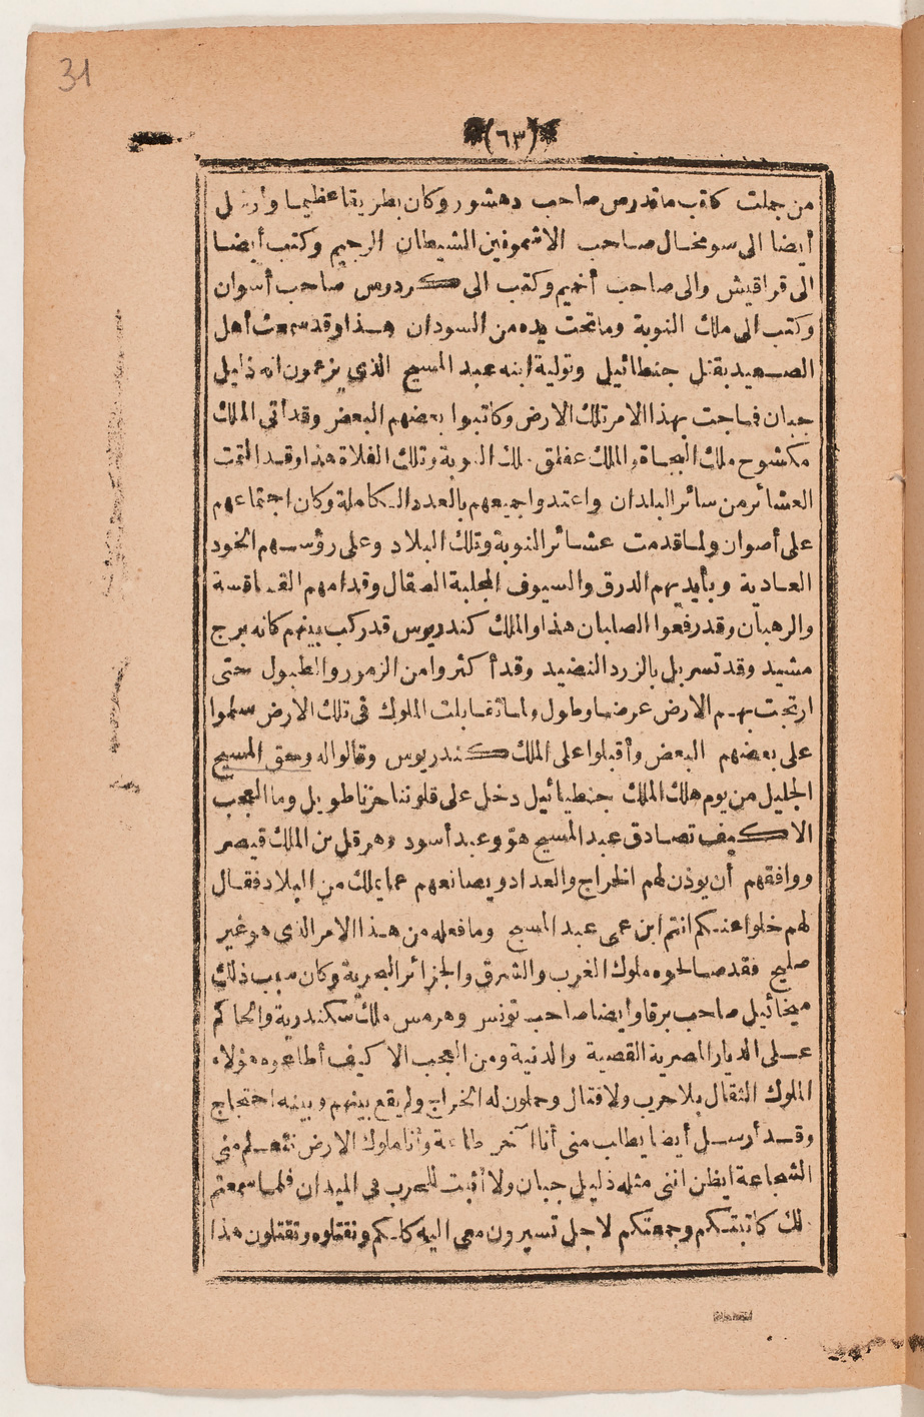 31
(٦٣)
من جملت كاتب ماقدرص صاحب دهشور وكان بطريقا عظيما وأرسل
أيضا الى سومخال صاحب الاشمونين الشيطان الرجيم وكتب أيضا
الى قراقيش والى صاحب أخميم وكتب الى كردوس صاحب أسوان
وكتب الى ملك النوبة وماتحت يده من السودان هذا وقد سمعت أهل
الصعيد بقتل جنطائيل وتولية ابنه عبد المسيح الذي يزعمون انه ذليل
جبان فهاجت بهذا الامر تلك الارض وكاتبوا بعضهم البعض وقد أتى الملك
مكشوح ملك البجاة والملك عفلق ملك النوبة وتلك الفلاة هذا وقد التمت
العشائر من سائر البلدان واعتدوا جميعهم بالعدد الكاملة وكان اجتماعهم
على أصوان ولما قدمت عشائر النوبة وتلك البلاد وعلى رؤسهم الخود
العادية وبأيديهم الدرق والسيوف المجلبة الصقال وقدامهم القساقسة
والرهبان وقد رفعوا الصلبان هذا والملك كندريوس قد ركب بينهم كانه برج
مشيد وقد تسربل بالزرد النضيد وقد أكثروا من الزمور والطبول حتى
ارتجت بهم الارض عرضا وطول ولما تقابلت الملوك في تلك الارض سلموا
على بعضهم البعض وأقبلوا على الملك كندريوس وقالوا له وحق المسيح
الجليل من يوم هلك الملك جنطيائيل دخل على قلوبنا حزنا طويل وما العجب
الا كيف تصادق عبد المسيح هو وعبد أسود وهرقل بن الملك قيصر
ووافقهم أن يوذن لهم الخراج والعداد ويصانعهم عما يملك من البلاد فقال
لهم خلوا عنكم انتم ابن عمى عبد المسيح وما فعله من هذا الامر الذي هو غير
صليح فقد صالحوه ملوك الغرب والشرق والجزائر البحرية وكان سبب ذلك
ميخائيل صاحب برقا وأيضا صاحب تونس وهرمس ملك سكندرية والحاكم
على الديار المصرية القصية والدنية ومن العجب الا كيف أطاعوه هؤلاء
الملوك الثقال بلا حرب ولا قتال وحملون له الخراج ولم يقع بينهم وبينه احتجاج
وقد أرسل أيضا يطالب منى أنا الآخر طاعة وأنا ملوك الارض تتعلم منى
الشجاعة ايظن اننى مثله ذليل جبان ولا أثبت للحرب في الميدان فلما سمعتم
لك كاتبتكم وجمعتكم لاجل تسيرون معى اليه كلكم ونقتلوه وتقتلون هذا